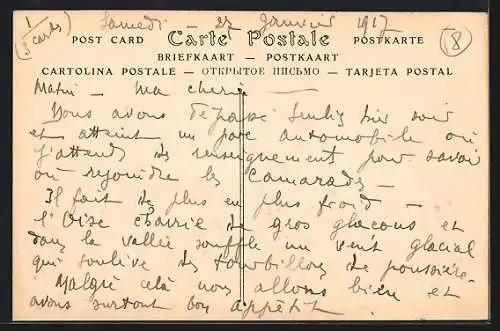 1 Samedi - 27 Janvier 1917
(3 cartes)
8
POST CARD Carte Postale POSTKARTE
BRIEFKAART — POSTKAART
CARTOLINA POSTALE — ОТКРЫТОЕ ПИСЬМО — TARJETA POSTAL
Matin - Ma cherie
Nous avons dépassé Senlis hier soir
et atteint un parc automobile où
j'attends des renseignement pour savoir
où rejoindre les Camarades -
Il fait de plus en plus froid -
l'Oise charrie de gros glacons et
dans la vallée souffle un vent glacial
qui soulève des tourbillons de poussière -
Malgré celà nous allons bien et
avons surtout bon appétit